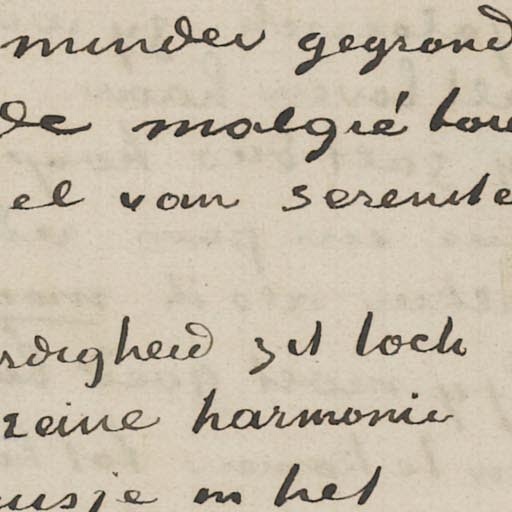 minder gegrond
de malgré tou
el van serenite
rdigheid zit toch
reine harmonie
usje in het